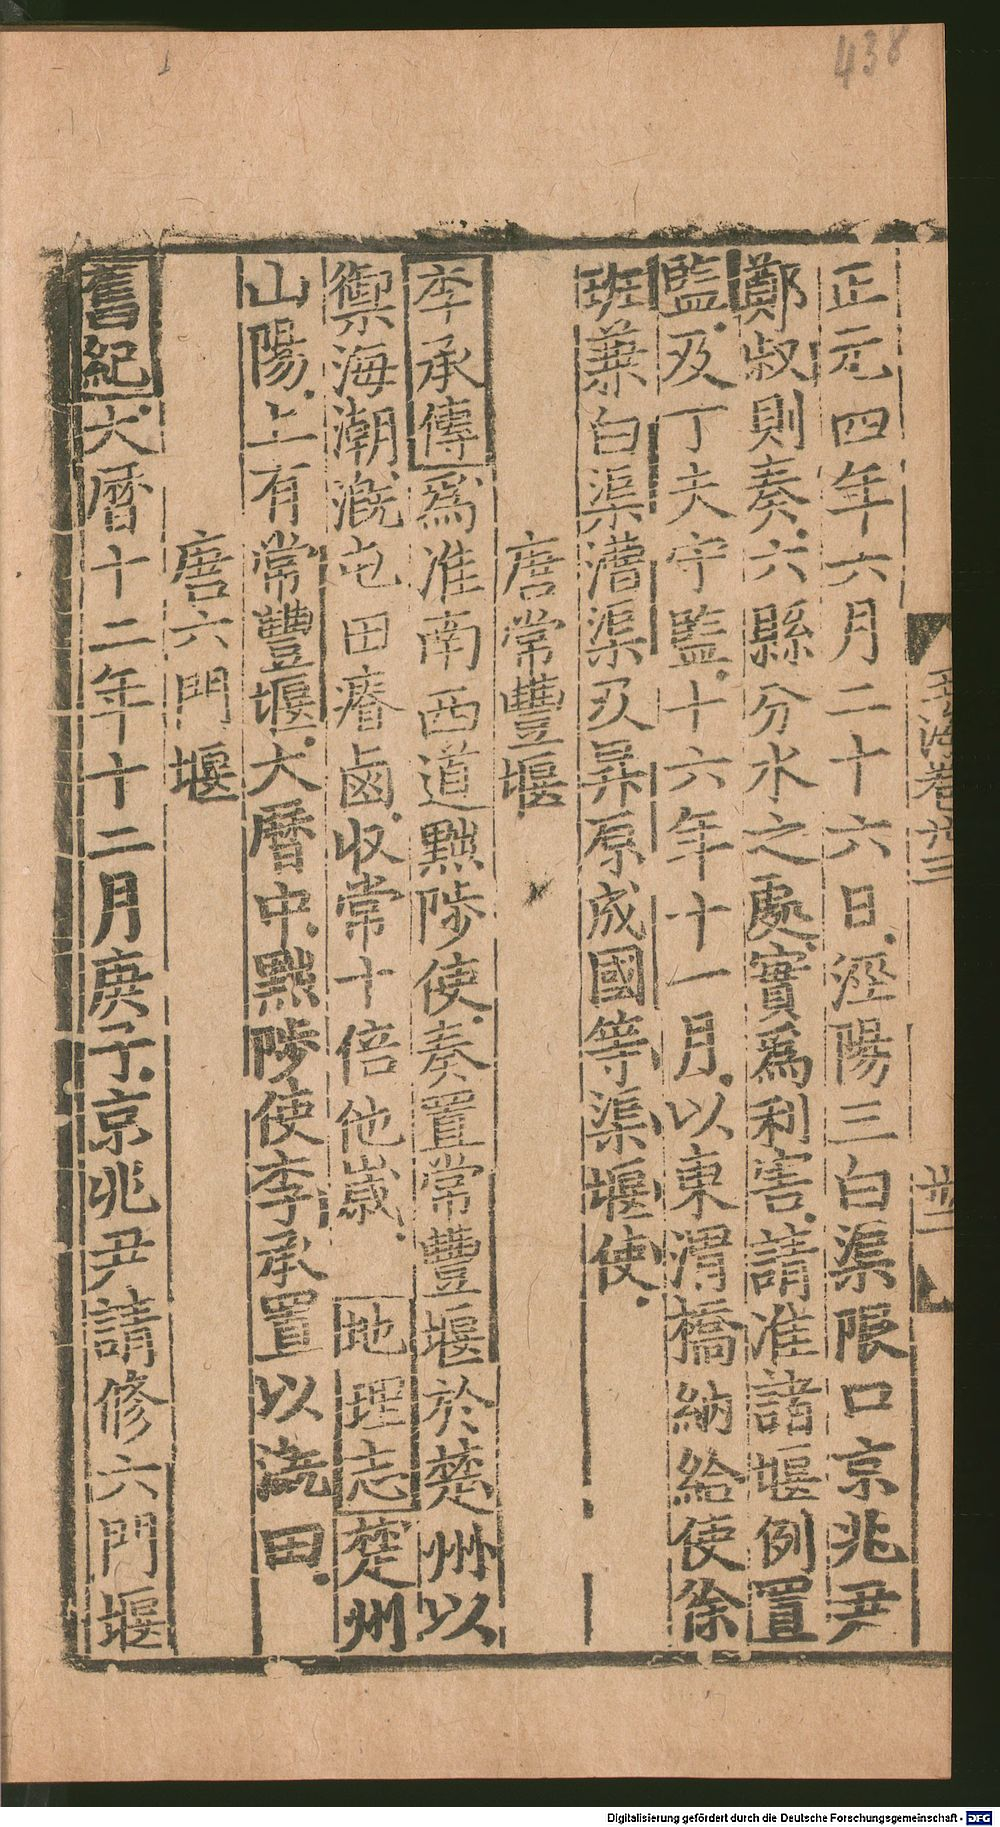 438
正元四年六月二十六日涇陽三白渠限口京兆尹
鄭叔則奏六縣分水之處實爲利害請准諸堰例置
監及丁夫守監十六年十一月以東渭橋納給使徐
班兼白渠漕渠及昇原成國等渠堰使
唐常豐堰
李承傳爲淮南西道黜陟使奏置常豐堰於楚州以
禦海潮漑屯田瘠鹵收常十倍他歲 地理志楚州
山陽上有常豐堰大曆中黜陟使李承置以漑田
唐六門堰
舊紀大曆十二年十二月庚子京兆尹請修六門堰
Digitalisierung gefördert durch die Deutsche Forschungsgemeinschaft - DFG